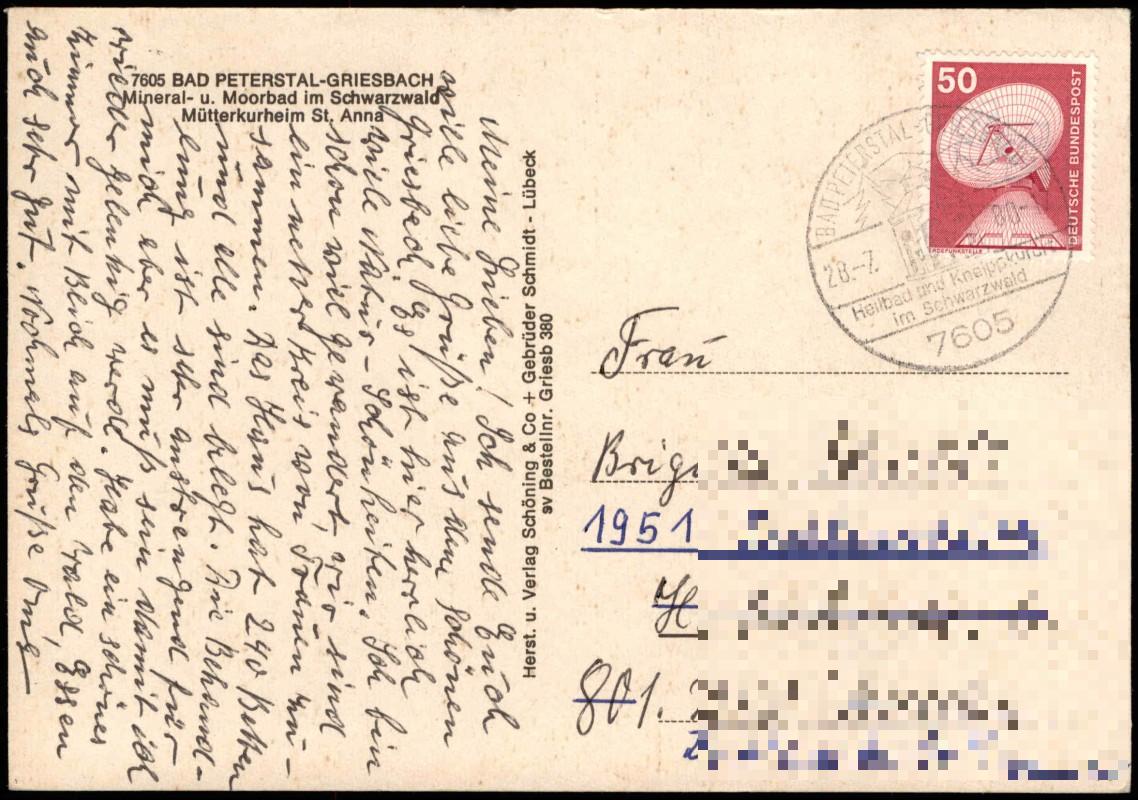 7605 BAD PETERSTAL-GRIESBACH
Mineral- u. Moorbad im Schwarzwald
Mütterkurheim St. Anna
Meine Lieben! Ich sende Euch
viele liebe Grüße aus dem schönen
Griesbach. Es ist hier herrlich
viele Natur-Schönheiten. Ich bin
schon viel gewandert, wir sind
ein netter Kreis von Frauen zu-
sammen. Das Haus hat 240 Betten
und alle sind belegt. Die Behand-
lung ist sehr anstrengend für
mich aber es muß sein damit ich
wieder gelenkig werde. Habe ein schönes
Zimmer mit Blick auf den Wald, Essen
auch sehr gut. Nochmals Grüße
Herst. u. Verlag Schöning & Co + Gebrüder Schmidt - Lübeck
sv Bestellnr. Griesb 380
50
DEUTSCHE BUNDESPOST
ERDEFUNKSTELLE
BAD PETERSTAL-
28.-7. 80-
Heilbad und Kneippkurort
im Schwarzwald
7605
Frau
1951
801.